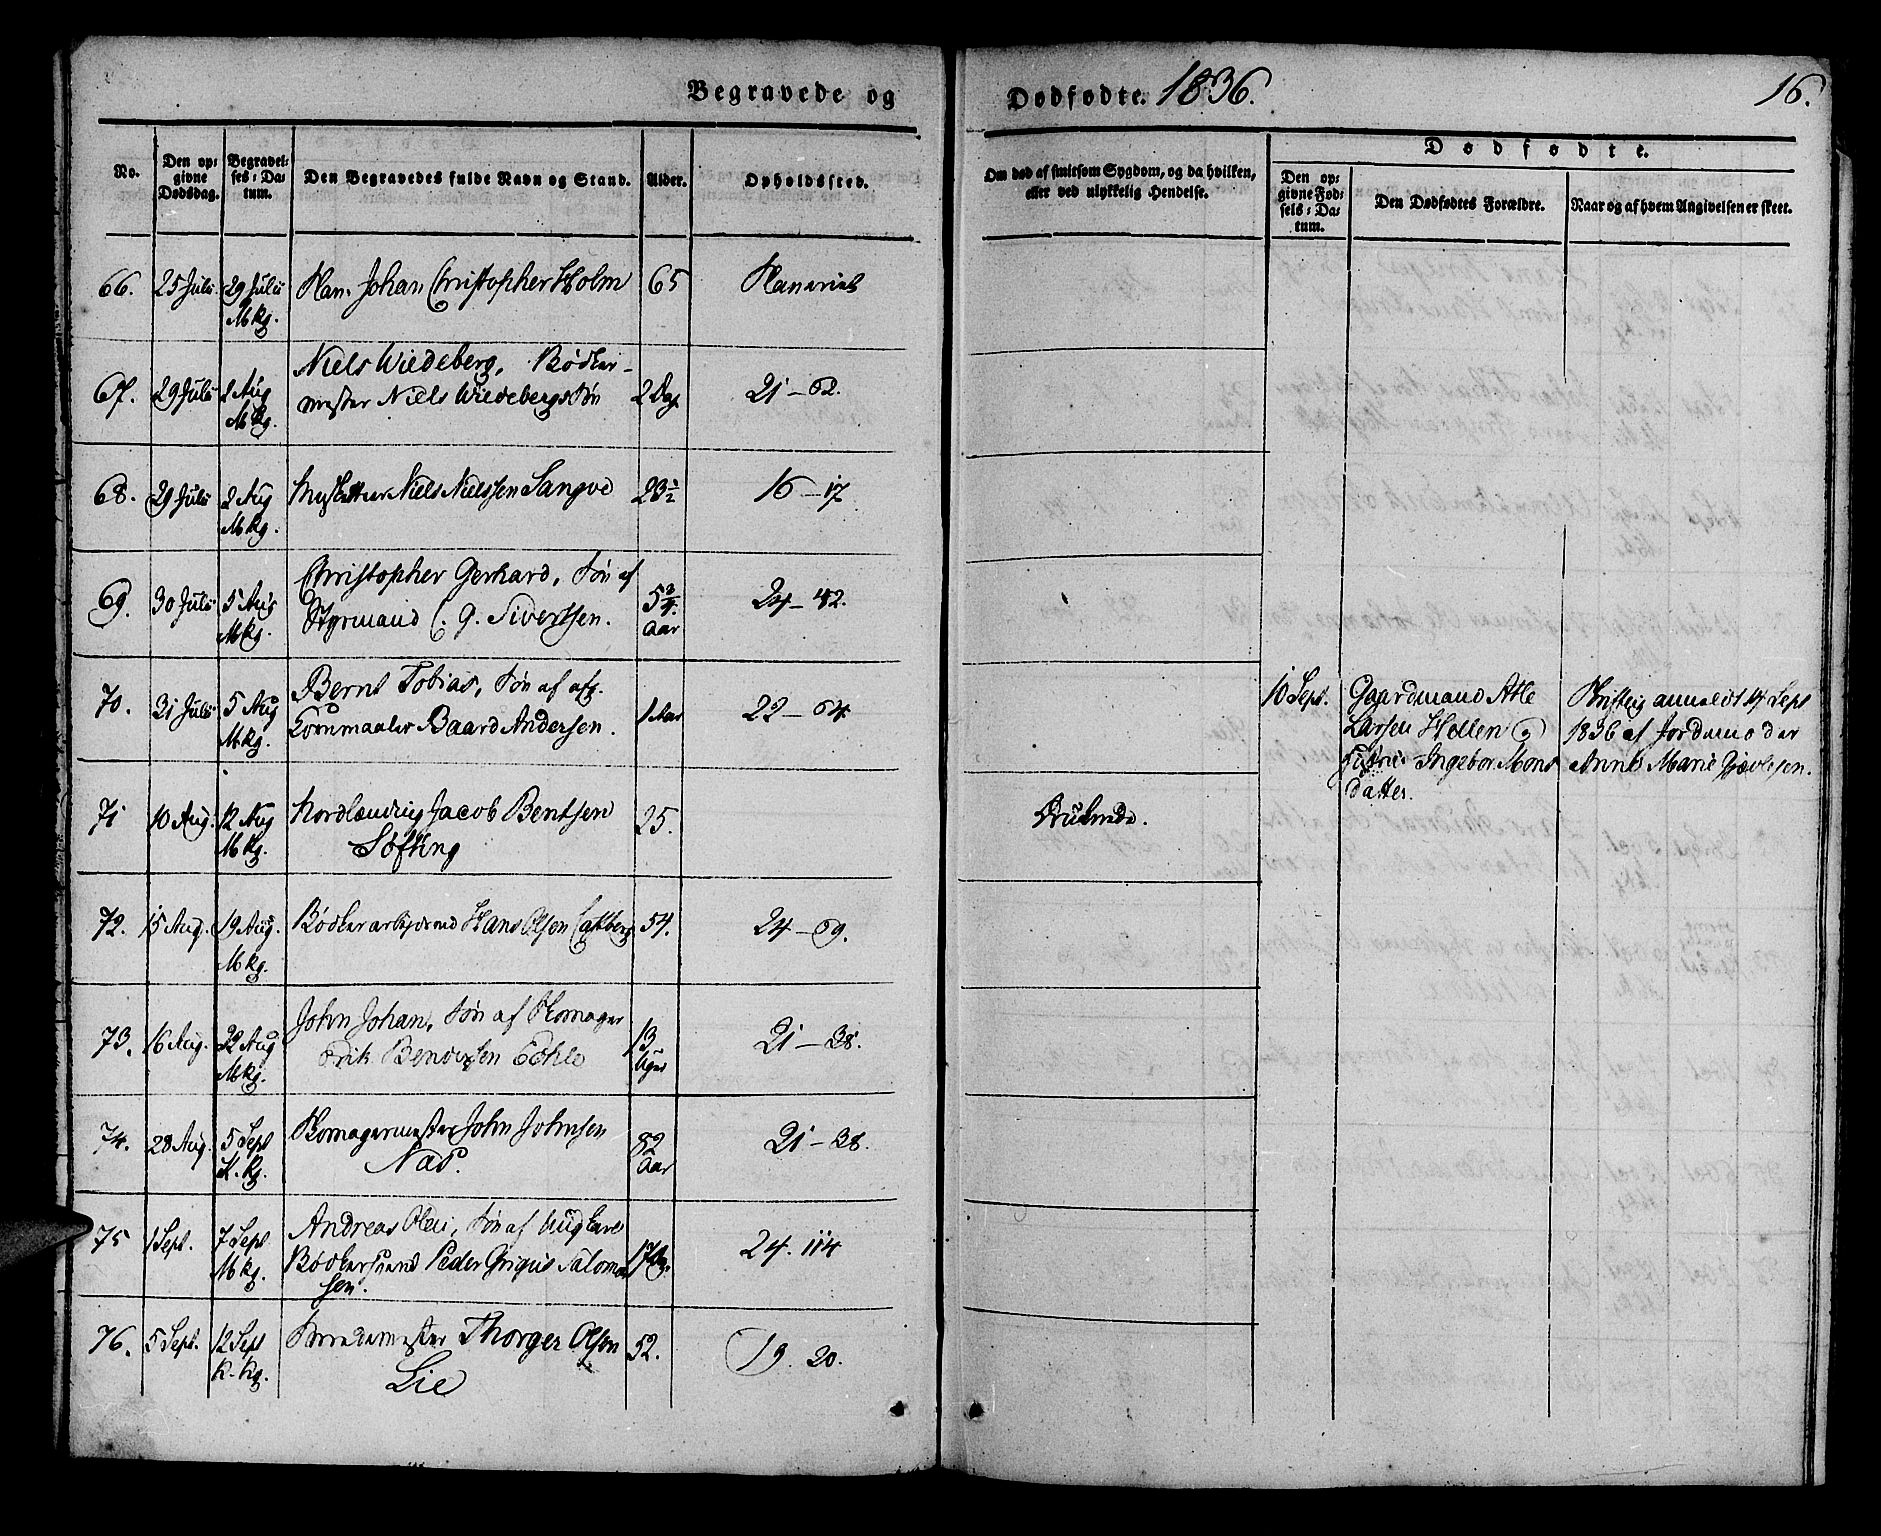 Begravede og
Dødfødte. 1836.
16.
No.
Den opgivne Dødsdag.
Begravelses-Datum.
Den Begravedes fulde Navn og Stand.
Alder.
Opholdssted.
Om død af smitsom Sygdom, og da hvilken, eller ved ulykkelig Hendelse.
Dødfødte.
Den opgivne Fødsels-Datum.
Den Dødfødtes Forældre.
Naar og af hvem Angivelsen er skeet.
66. 25 Julii 29 Julii Johan Christopher Holm 65
Mkg.
Niels Wiedeberg, Bødker-
67. 29 Julii 2 Aug mester Niels Wiedebergs Søn 2 Dage 21 – 62.
Mkg.
68. 29 Julii 2 Aug Musketteer Niels Nielssen Sangvo 23½ 16 – 17
Mkg.
Christopher Gerhard, Søn af
69. 30 Julii 5 Aug Styrmand C. G. Sivertsen. 5¾ Aar 24 – 42.
Mkg.
Bernt Tobias, Søn af afg.
70. 31 Julii 5 Aug Kornmaaler Baard Andersen. 1 Aar 22 – 64.
Mkg.
10 Sept. Gaardmand Atle Skriftlig anmeldt 14 Sept
Larsen Hellen og 1836 af Jordmoder
Ingebor Mons Anne Marie
datter.
71 10 Aug. 12 Aug Nordlænding Jacob Bentsen 25. Druknede.
Mkg. Søfting
72. 15 Aug. 19 Aug. Bødkerarbejdsmd Hans Olsen 54. 24 – 69.
Mkg.
John Johan, Søn af Skomager
73. 16 Aug. 22 Aug Erik 13 Uger 21 – 38.
Mkg.
74. 28 Aug. 5 Sept Skomagermester John Johnsen 82 Aar 21 – 38.
K. Kg. Nas.
Andreas Olai, Søn af
75 1 Sept. 7 Sept Bødkersvend Peder Grigus Salomon 24. 114
Mkg. sen.
76. 5 Sept. 12 Sept Thorger Olson 52. 19. 20.
K. Kg. Lie